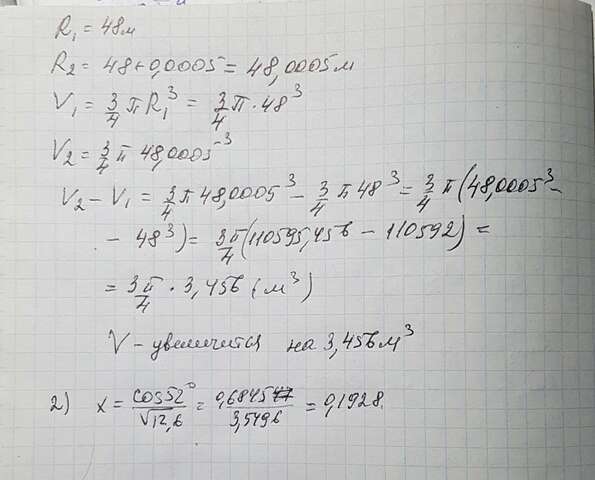 R₁ = 48м
R₂ = 48+0,0005 = 48,0005м
V₁ = 3/4 π R₁³ = 3/4 π · 48³
V₂ = 3/4 π 48,0005³
V₂ - V₁ = 3/4 π 48,0005³ - 3/4 π 48³ = 3/4 π (48,0005³ -
- 48³) = 3π/4 (110595,456 - 110592) =
= 3π/4 · 3,456 (м³)
V - увеличится на 3,456 м³
2) x = cos52°/√12,6 = 0,6845/3,5496 = 0,1928.